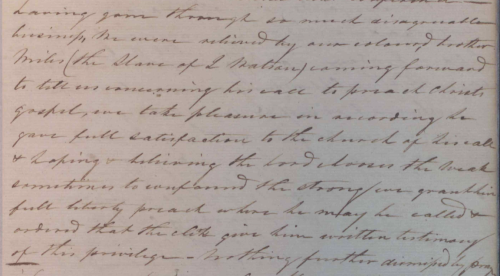 having gone through so much disagreeable
business, We were relieved by our coloured brother
Miles (the Slave of L Watson) coming forward
to tell us concerning his call to preach Christs
gospel, we take pleasure in according he
gave full satisfaction to the church of his call
& hoping & believing the Lord chooses the weak
sometimes to confound the strong, we grant him
full liberty preach where he may be called &
ordered that the clerk give him written testimony
of this privilege - Nothing further dismissed by